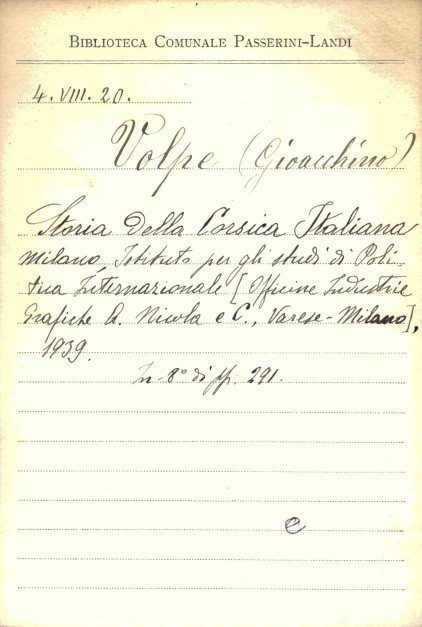 BIBLIOTECA COMUNALE PASSERINI-LANDI
4. VIII. 20.
Volpe (Gioacchino)
Storia Della Corsica Italiana
Milano, Istituto per gli studi di Poli-
tica Internazionale [Officine Industrie
Grafiche A. Nicola e C., Varese-Milano],
1939.
In-8° di pp. 291.
e